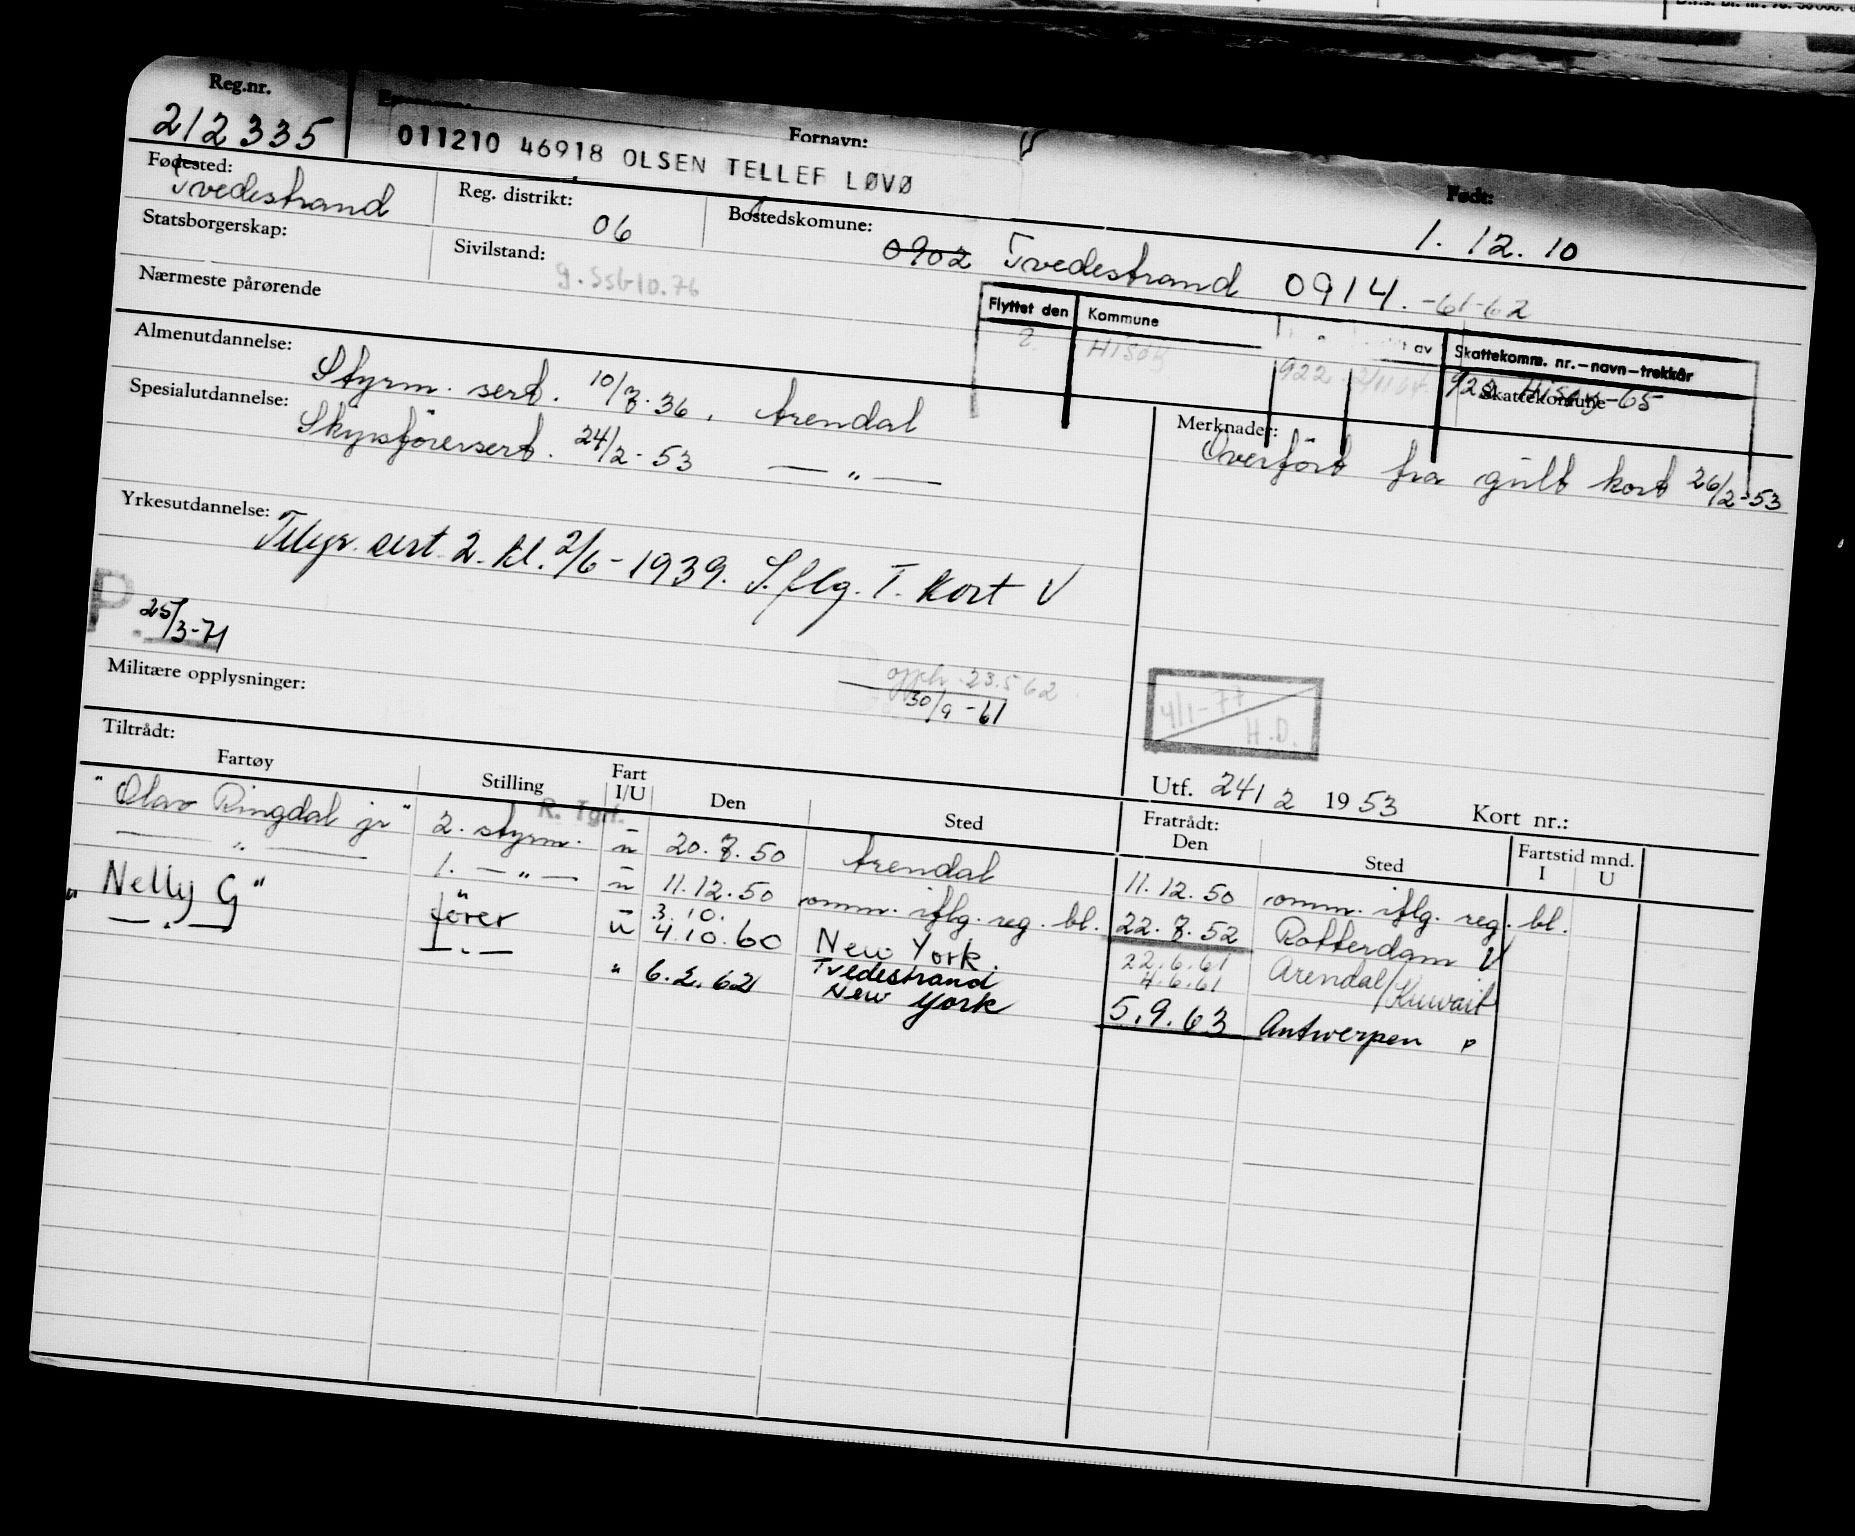 Reg.nr.
Fornavn:
Født:
212335
011210 46918 OLSEN TELLEF LØVØ
1. 12. 10
Fødested:
Tvedestrand
Reg. distrikt:
06
Bostedskomune:
0902 Tvedestrand 0914. -61-62
Statsborgerskap:
Sivilstand:
g. Ssb 10.76
Nærmeste pårørende
Flyttet den
Kommune
av
Skattekomm. nr.—navn—trekkår
Hisøy
922
922 Hisøy-65
Skattekomune
Almenutdannelse:
Styrm. sert. 10/7.36, Arendal
Spesialutdannelse:
Skipsförersert. 24/2-53 — " —
Merknader:
Overfört fra gult kort 26/2-53
Yrkesutdannelse:
Telegr. sert. 2. kl. 2/6-1939. I.flg. T. kort V
P
25/3-71
Militære opplysninger:
opph. 23.5 62
30/9-61
4/1-77
H.D.
Utf. 24/2 1953
Kort nr.:
Tiltrådt:
Fratrådt:
Fartstid mnd.
Fartøy
Stilling
Fart I/U
Den
Sted
Den
Sted
I
U
R. Tgrf.
"Olav Ringdal jr" 2. styrm. u 20.7.50 Arendal 11.12.50 omm. iflg. reg. bl.
— " — 1. — " — u 11.12.50 omm. iflg. reg. bl. 22.7.52 Rotterdam V
"Nelly G" förer u 3.10. 4.10.60 New York. 22.6.61 4.6.61 Arendal/Kuwait
— " — — " — " 6.2.62 Tvedestrand New York 5.9.63 Antwerpen P